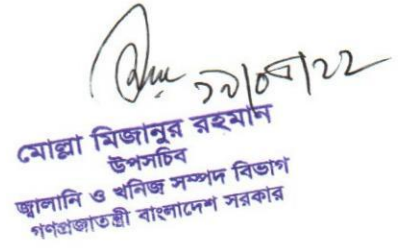 ১৯/০৪/২২
মোল্লা মিজানুর রহমান
উপসচিব
জ্বালানি ও খনিজ সম্পদ বিভাগ
গণপ্রজাতন্ত্রী বাংলাদেশ সরকার